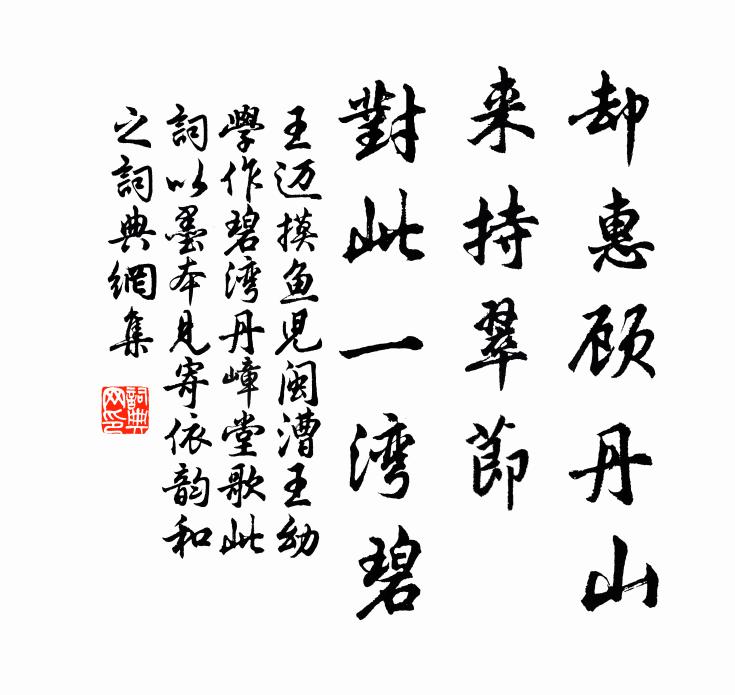 却惠顾丹山
来持翠節
對此一湾碧
王迈摸鱼児闽漕王幼
學作碧湾丹嶂堂歌此
詞以墨本見寄依韵和
之詞典網集
詞典
网印